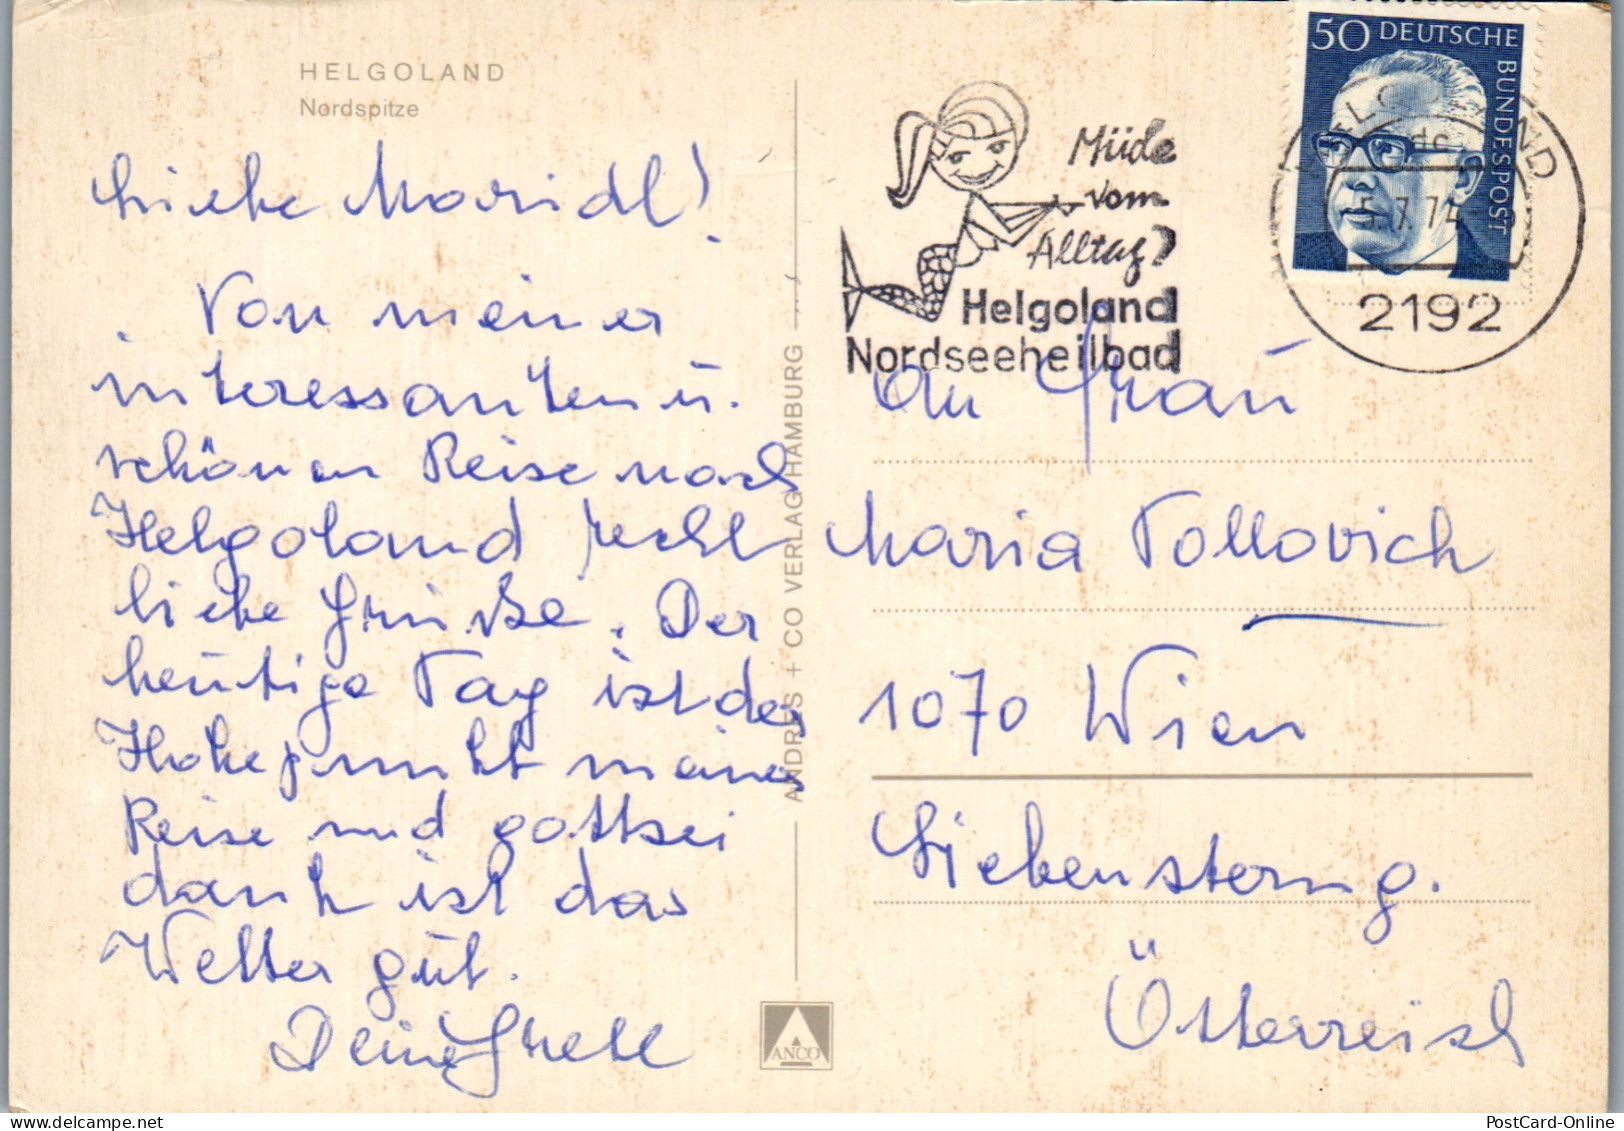 HELGOLAND
Nordspitze
Liebe Maridl!
Von meiner
interessanten u.
schönen Reise nach
Helgoland recht
liebe Grüße. Der
heutige Tag ist der
Höhepunkt meiner
Reise und gottsei
dank ist das
Wetter gut.
Deine Grete
ANDRES + CO VERLAG HAMBURG
ANCO
Müde
vom
Alltag?
Helgoland
Nordseeheilbad
50 DEUTSCHE
BUNDESPOST
HELGOLAND
5.7.74
2192
An Frau
Maria Tollovich
1070 Wien
Siebensterng.
Österreich
PostCard-Online